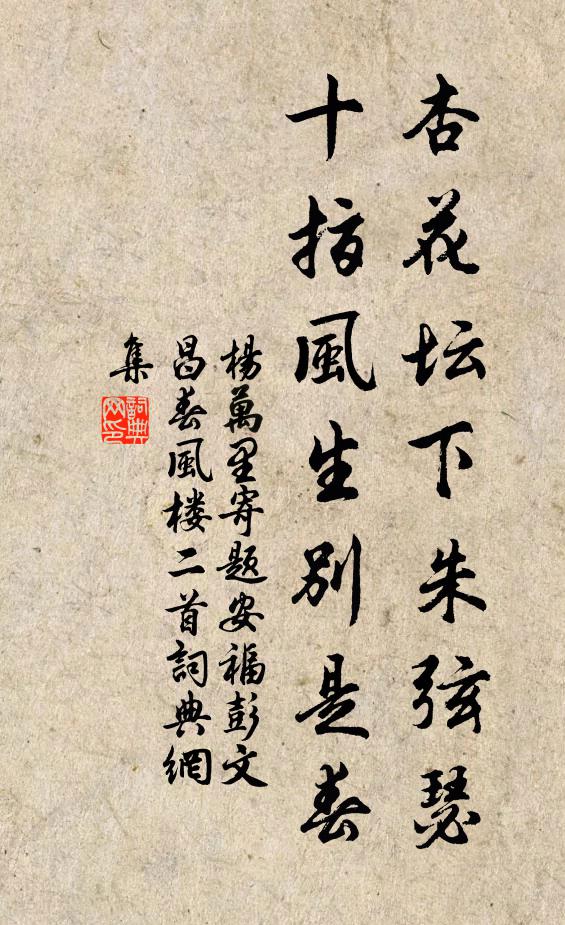 杏花坛下朱弦瑟
十指風生别是春
楊萬里寄题安福彭文
昌春風楼二首詞典網
集
詞典網印